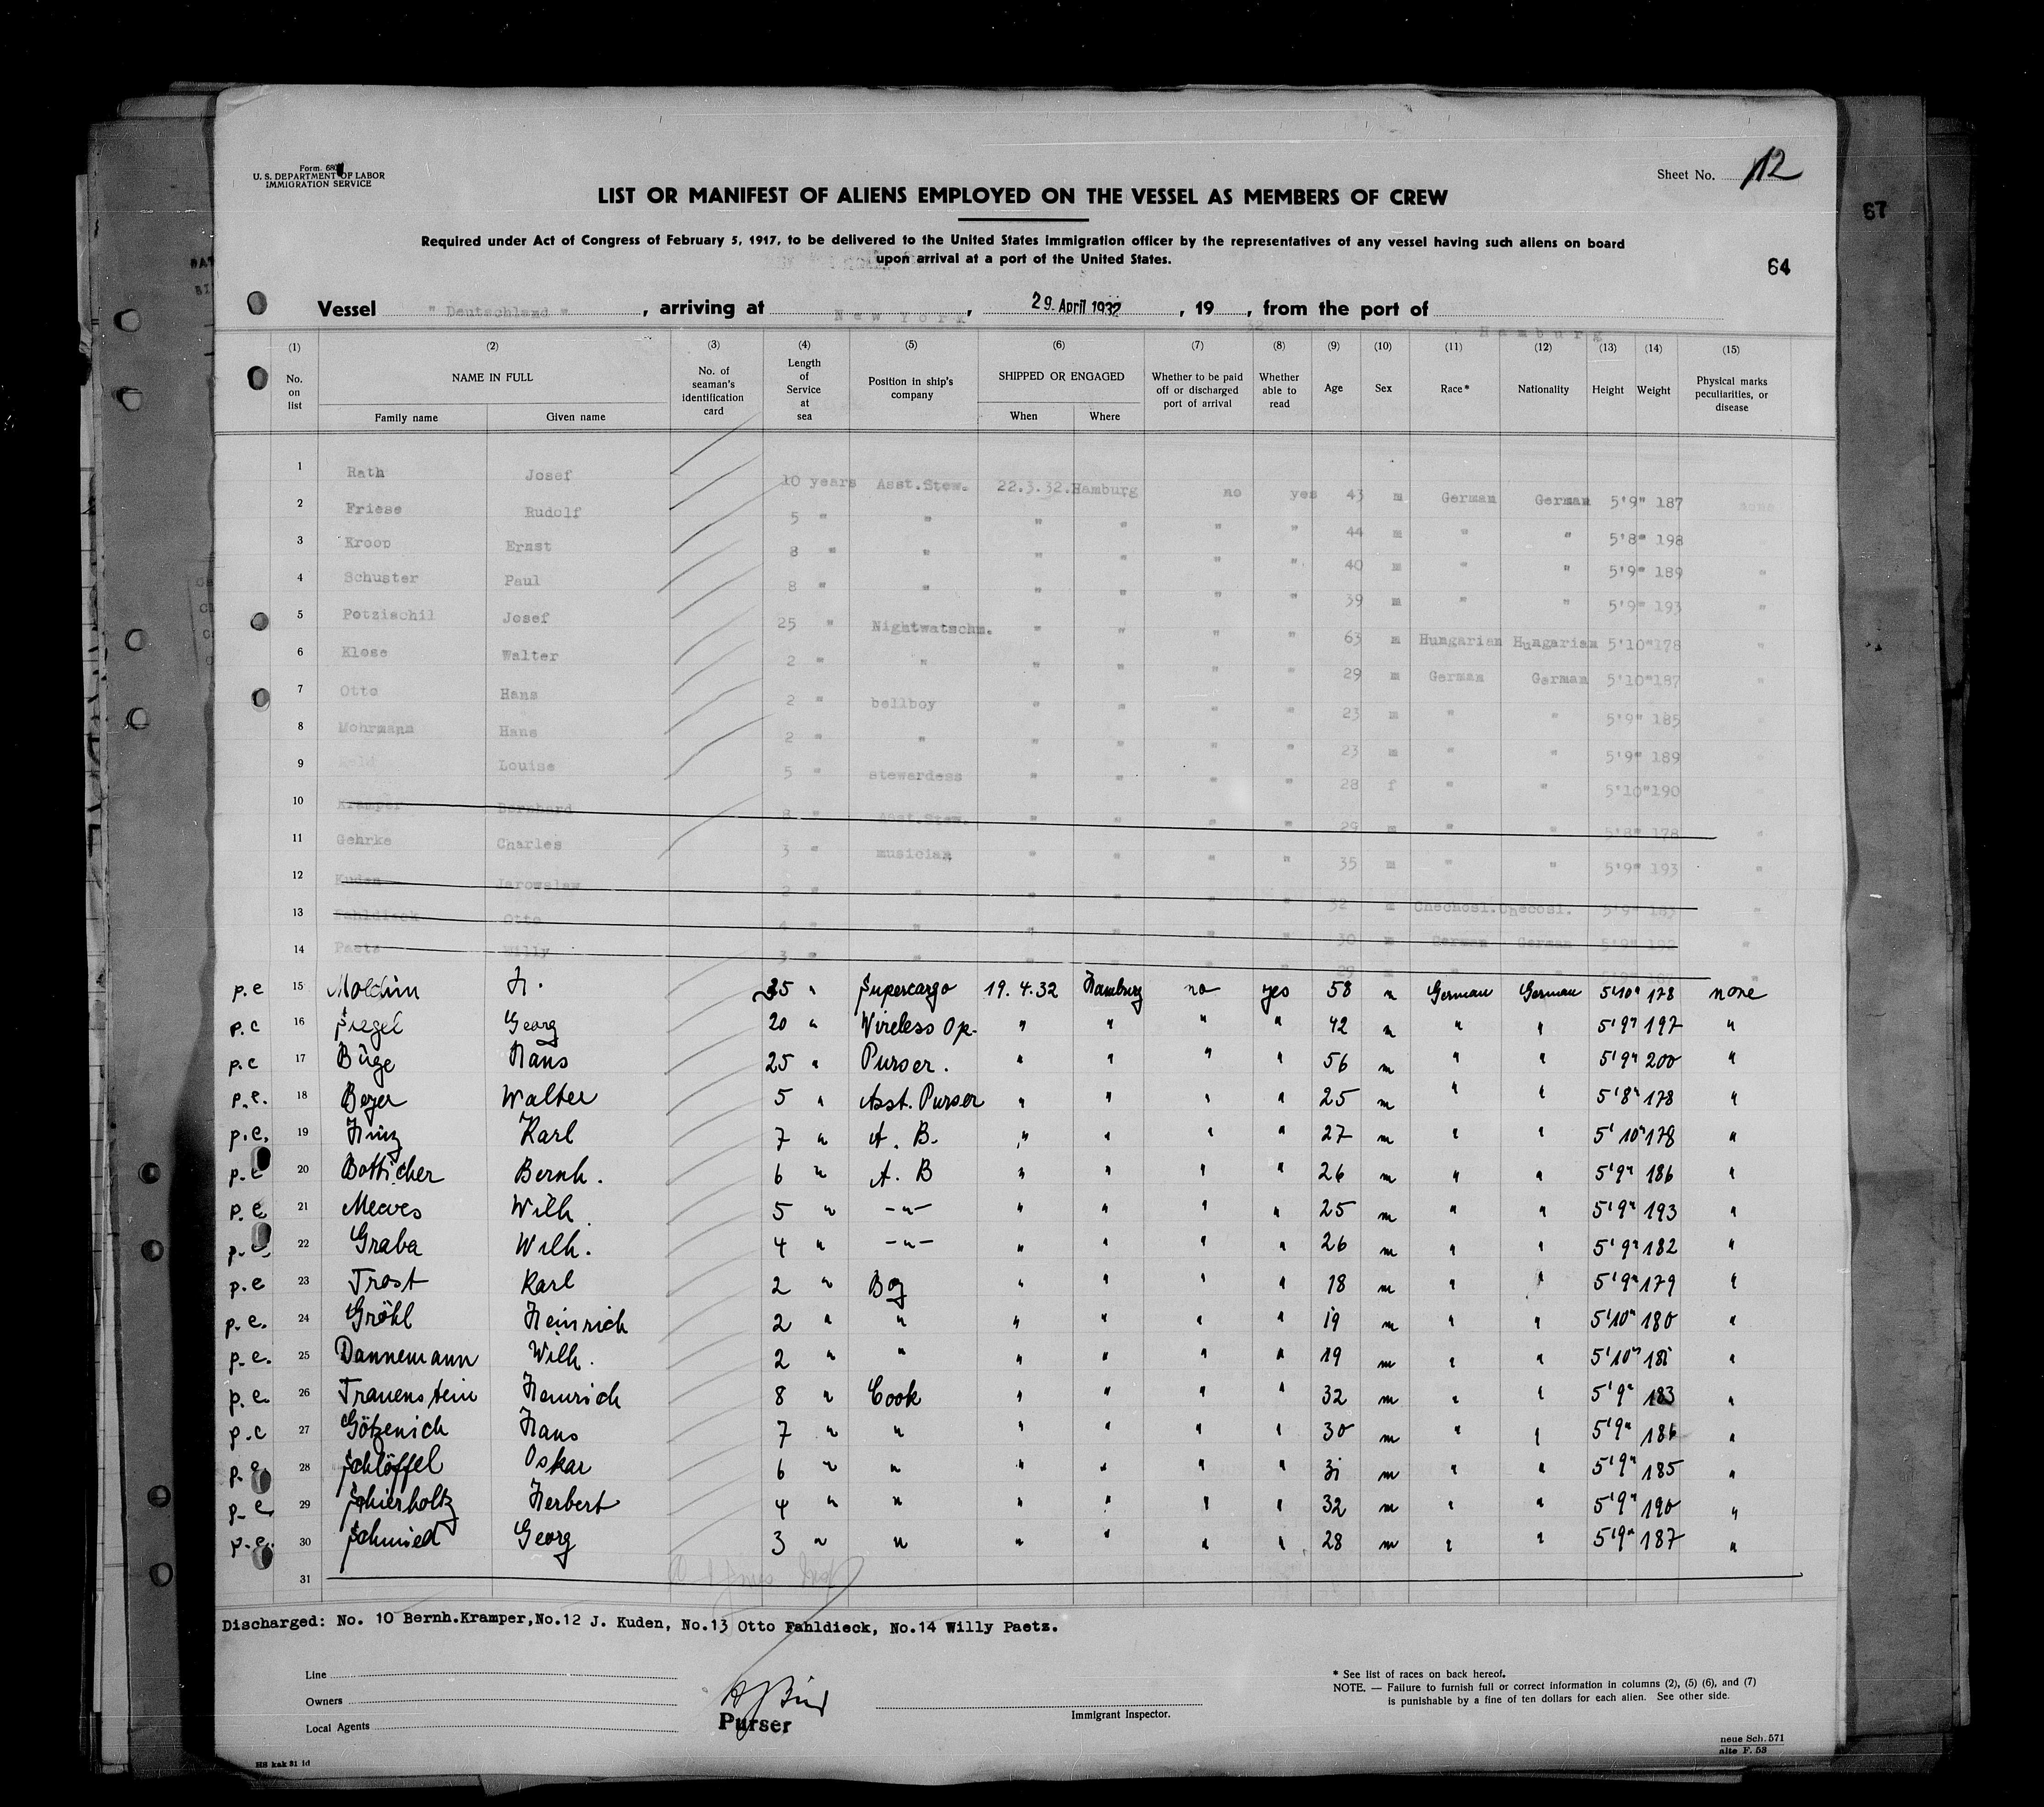 Form. 680
U. S. DEPARTMENT OF LABOR
IMMIGRATION SERVICE
Sheet No. 12
LIST OR MANIFEST OF ALIENS EMPLOYED ON THE VESSEL AS MEMBERS OF CREW
67
Required under Act of Congress of February 5, 1917, to be delivered to the United States immigration officer by the representatives of any vessel having such aliens on board
upon arrival at a port of the United States.
64
Vessel "Deutschland", arriving at New York, 29. April 1932, 19 32, from the port of Hamburg
(1) (2) (3) (4) (5) (6) (7) (8) (9) (10) (11) (12) (13) (14) (15)
No. on list NAME IN FULL Family name Given name No. of seaman's identification card Length of Service at sea Position in ship's company SHIPPED OR ENGAGED When Where Whether to be paid off or discharged port of arrival Whether able to read Age Sex Race* Nationality Height Weight Physical marks peculiarities, or disease
1 Rath Josef 10 years Asst.Stew. 22.3.32. Hamburg no yes 43 m German German 5'9" 187 none
2 Friese Rudolf 5 " " " " " " 44 m " " 5'8" 198
3 Kroop Ernst 8 " " " " " " 40 m " " 5'9" 189 "
4 Schuster Paul 8 " " " " " " 39 m " " 5'9" 193 "
5 Potzischil Josef 25 " Nightwatschm. " " " " 63 m Hungarian Hungarian 5'10" 178 "
6 Klose Walter 2 " " " " " " 29 m German German 5'10" 187 "
7 Otto Hans 2 " bellboy " " " " 23 m " " 5'9" 185 "
8 Mohrmann Hans 2 " " " " " " 23 m " " 5'9" 189 "
9 Louise 5 " stewardess " " " " 28 f " " 5'10" 190 "
10 Kramper Bernhard 8 " Asst.Stew. " " " " 29 m " " 5'8" 178 "
11 Gehrke Charles 3 " musician " " " " 35 m " " 5'9" 193 "
12 Kuden Jarowslaw 2 " " " " " " 32 m Chechosl. Checosl. 5'9" 183 "
13 Fahldieck Otto 4 " " " " " " 30 m German German 5'9" 192 "
14 Paets Willy 3 " " " " " " 29 m " " 5'9" 187
p.e 15 Molchin H. 35 " Supercargo 19.4.32 Hamburg no yes 58 m German German 5'10" 178 none
p.e 16 Siegel Georg 20 " Wireless Op. " " " " 42 m " " 5'9" 197 "
p.e 17 Büge Hans 25 " Purser. " " " " 56 m " " 5'9" 200 "
p.e. 18 Beyer Walter 5 " Asst. Purser " " " " 25 m " " 5'8" 178 "
p.e. 19 Hinz Karl 7 " A. B. " " " " 27 m " " 5'10" 178 "
p.e 20 Botticher Bernh. 6 " A. B " " " " 26 m " " 5'9" 186 "
p.e 21 Meeves Wilh. 5 " -"- " " " " 25 m " " 5'9" 193 "
p.e. 22 Graba Wilh. 4 " -"- " " " " 26 m " " 5'9" 182 "
p.e 23 Trost Karl 2 " Boy " " " " 18 m " " 5'9" 179 "
p.e. 24 Gröhl Heinrich 2 " " " " " " 19 m " " 5'10" 180 "
p.e. 25 Dannemann Wilh. 2 " " " " " " 19 m " " 5'10" 181 "
p.e. 26 Trauenstein Heinrich 8 " Cook " " " " 32 m " " 5'9" 183 "
p.e 27 Götzenich Hans 7 " " " " " " 30 m " " 5'9" 186 "
p.e. 28 Schlöffel Oskar 6 " " " " " " 31 m " " 5'9" 185 "
p.e. 29 Schierholtz Herbert 4 " " " " " " 32 m " " 5'9" 190 "
p.e. 30 Schmied Georg 3 " " " " " " 28 m " " 5'9" 187 "
31
Discharged: No. 10 Bernh.Kramper,No.12 J. Kuden, No.13 Otto Fahldieck, No.14 Willy Paets.
Line
Owners
Local Agents
Purser
Immigrant Inspector.
* See list of races on back hereof.
NOTE. — Failure to furnish full or correct information in columns (2), (5) (6), and (7)
is punishable by a fine of ten dollars for each alien. See other side.
neue Sch. 571
alte F. 53
HS kak 31 ld